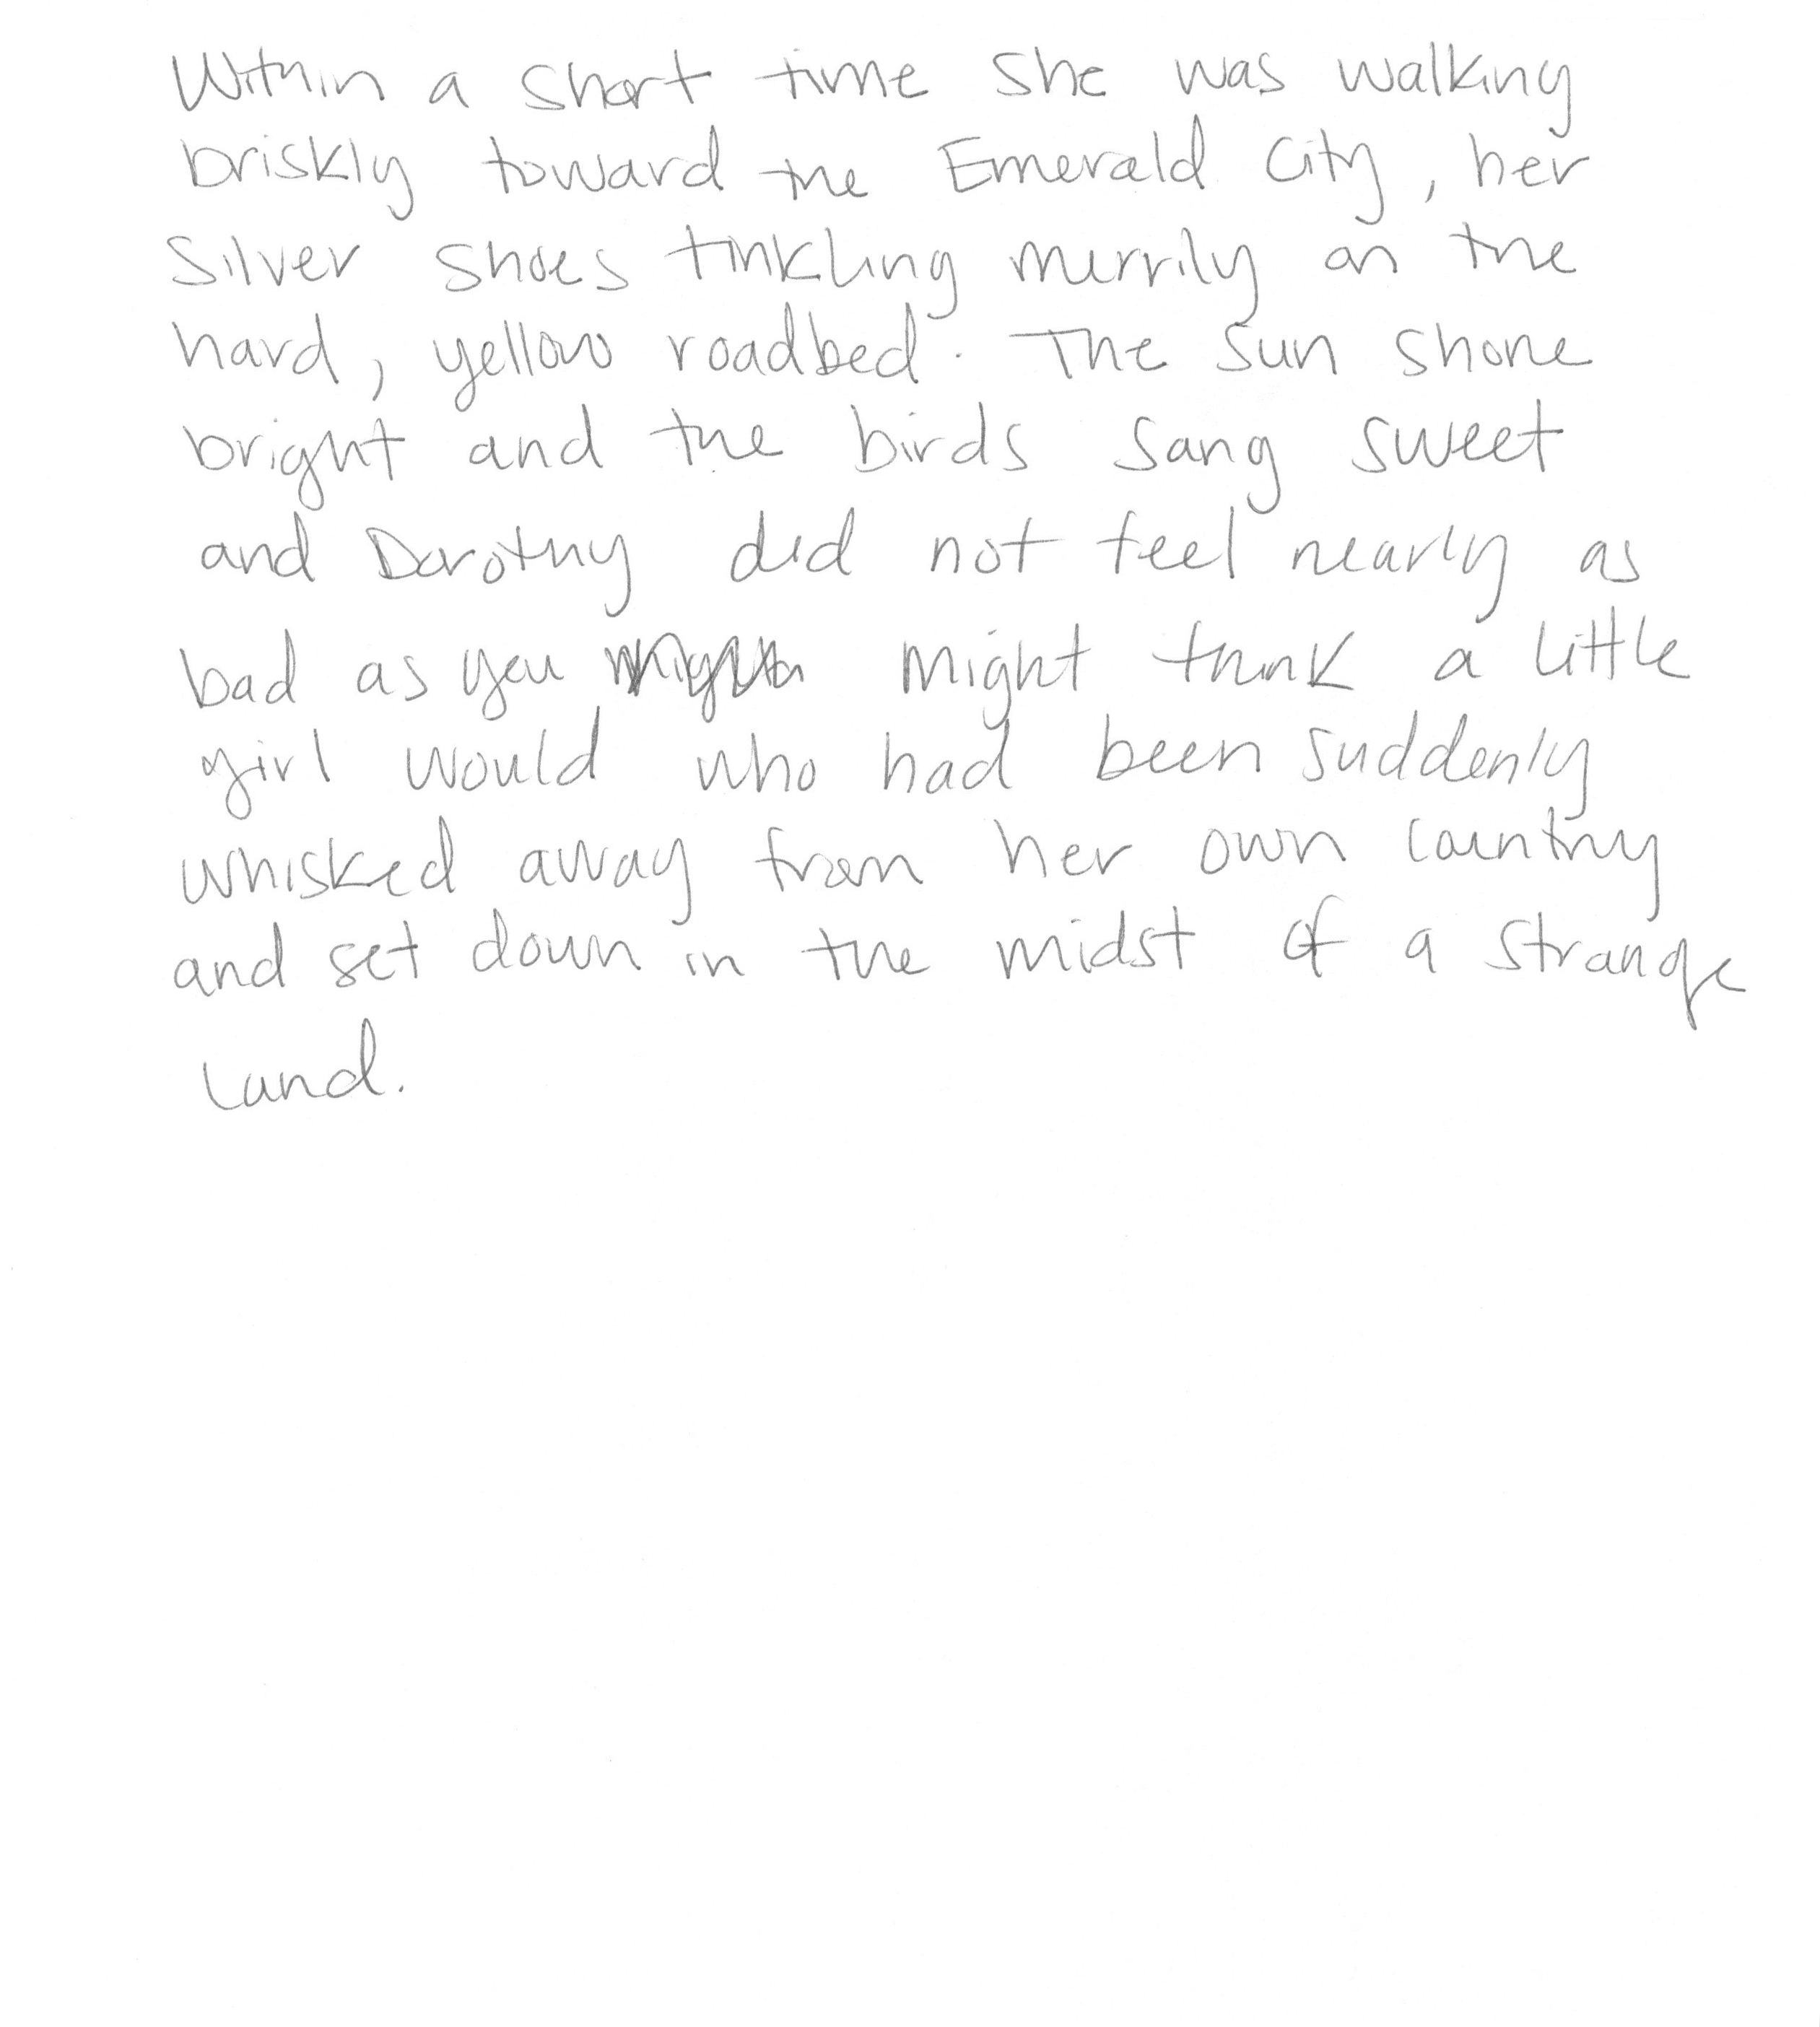 Within a short time she was walking
briskly toward the Emerald City, her
Silver shoes tinkling merrily on the
hard, yellow roadbed. The sun shone
bright and the birds sang sweet
and Dorothy did not feel nearly as
bad as you might think a little
girl would who had been suddenly
whisked away from her own country
and set down in the midst of a strange
land.